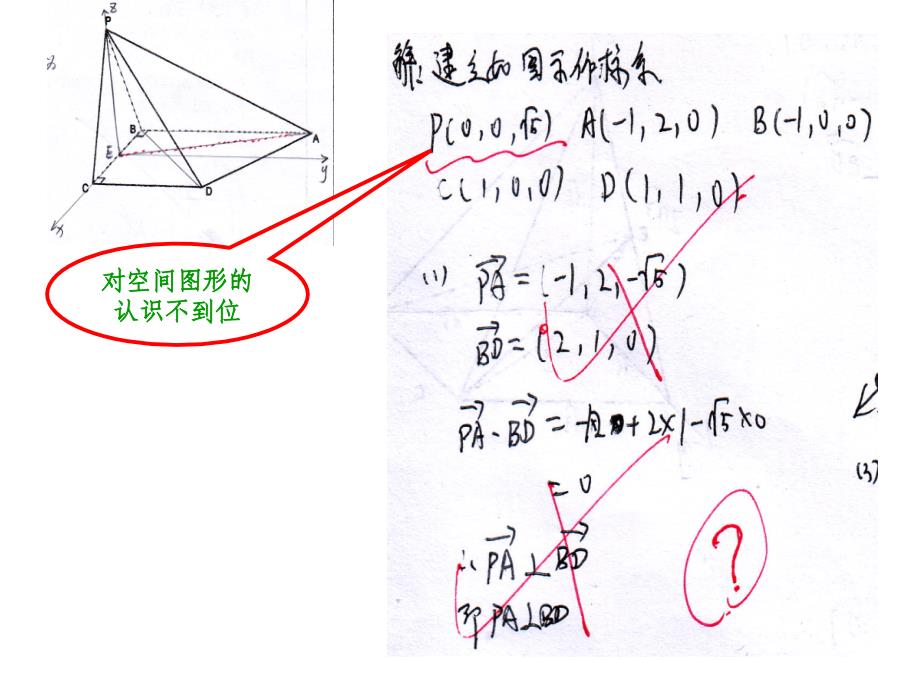 z
P
B
A
E
y
C
D
x
对空间图形的
认识不到位
解：建立如图示作标系
P(0,0,√5) A(-1,2,0) B(-1,0,0)
C(1,0,0) D(1,1,0)
(1) PA=(-1,2,-√5)
BD=(2,1,0)
PA·BD= +2×1-√5×0
=0
∴PA⊥BD
即PA⊥BD
?
(3)